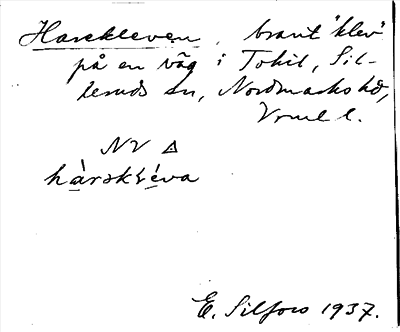 Harekleven, brant "klev"
på en väg i Tohil, Sil-
leruds sn, Nordmarks hd,
Vrml l.
NV
E. Silfors 1937.